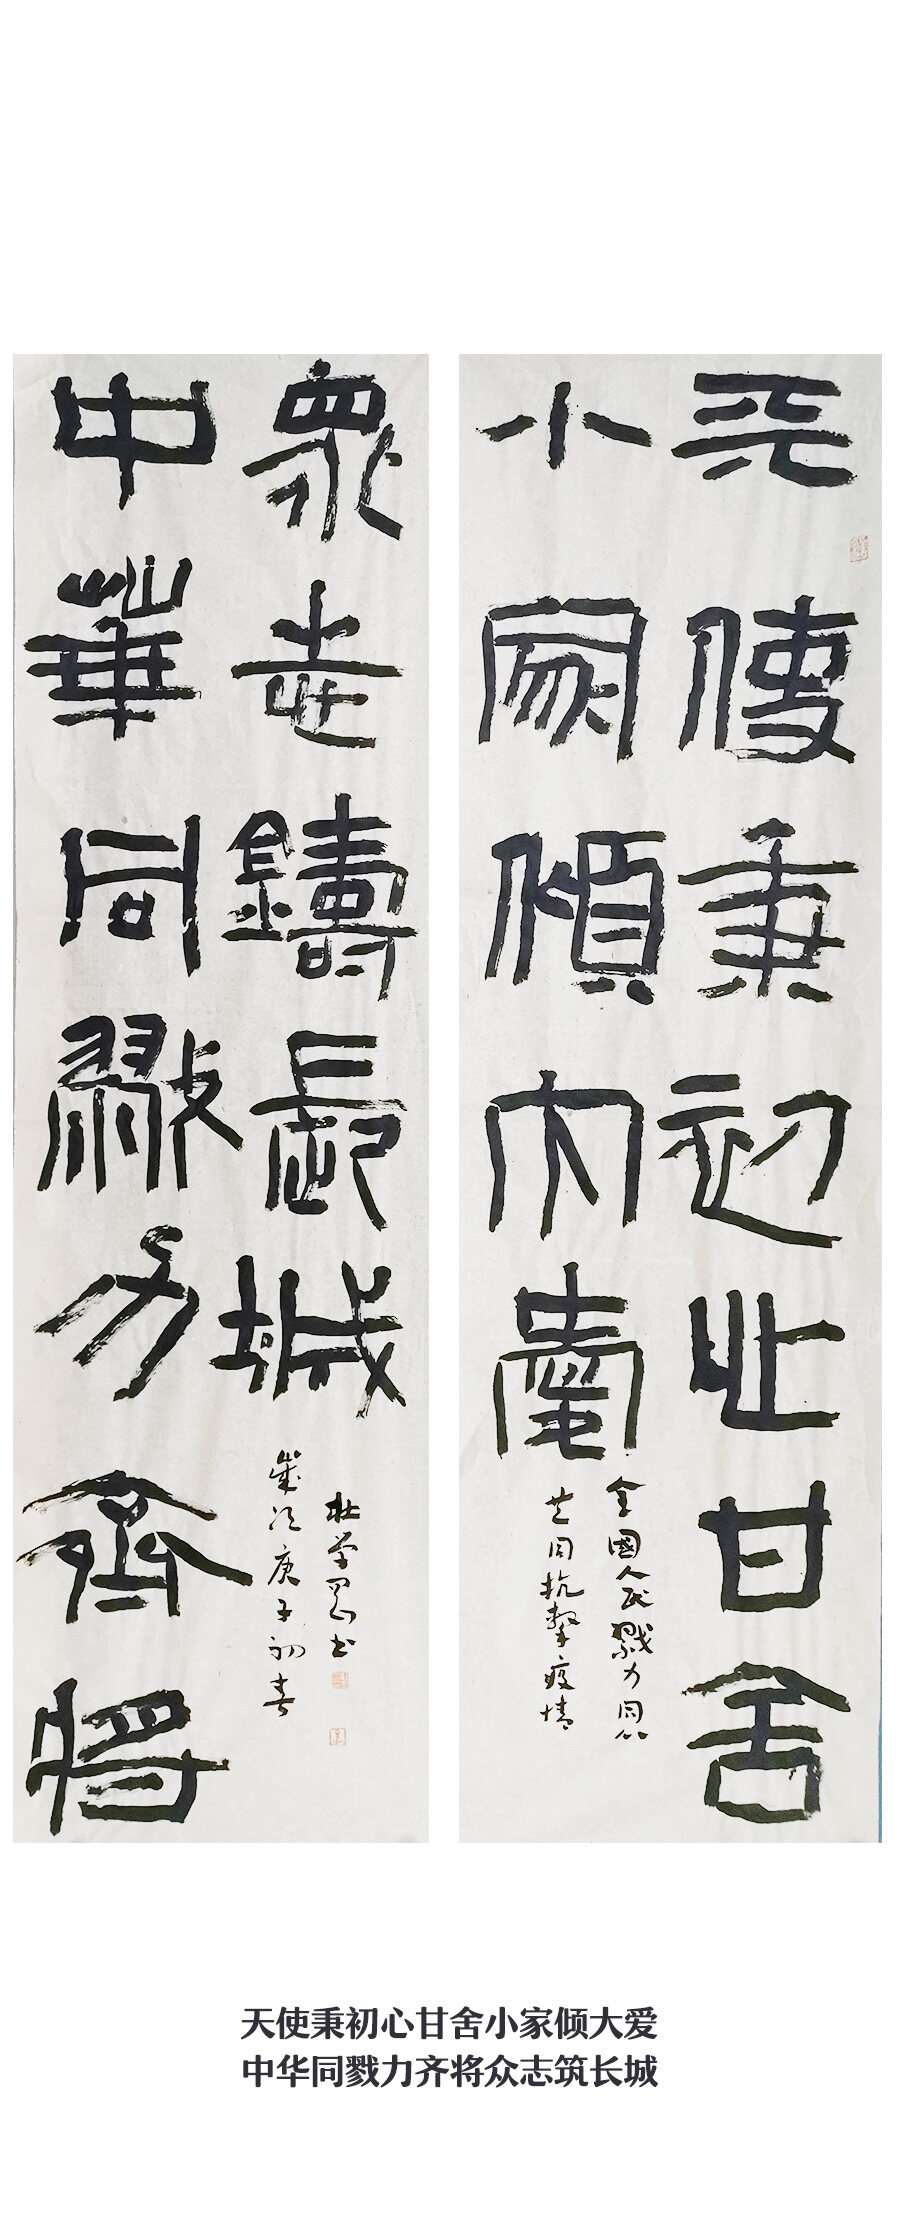 天使秉初心甘舍
小家傾大愛
全國人民戮力同心
共同抗擊疫情
中華同戮力齊將
眾志鑄長城
歲次庚子初春
杜学书
天使秉初心甘舍小家倾大爱
中华同戮力齐将众志筑长城